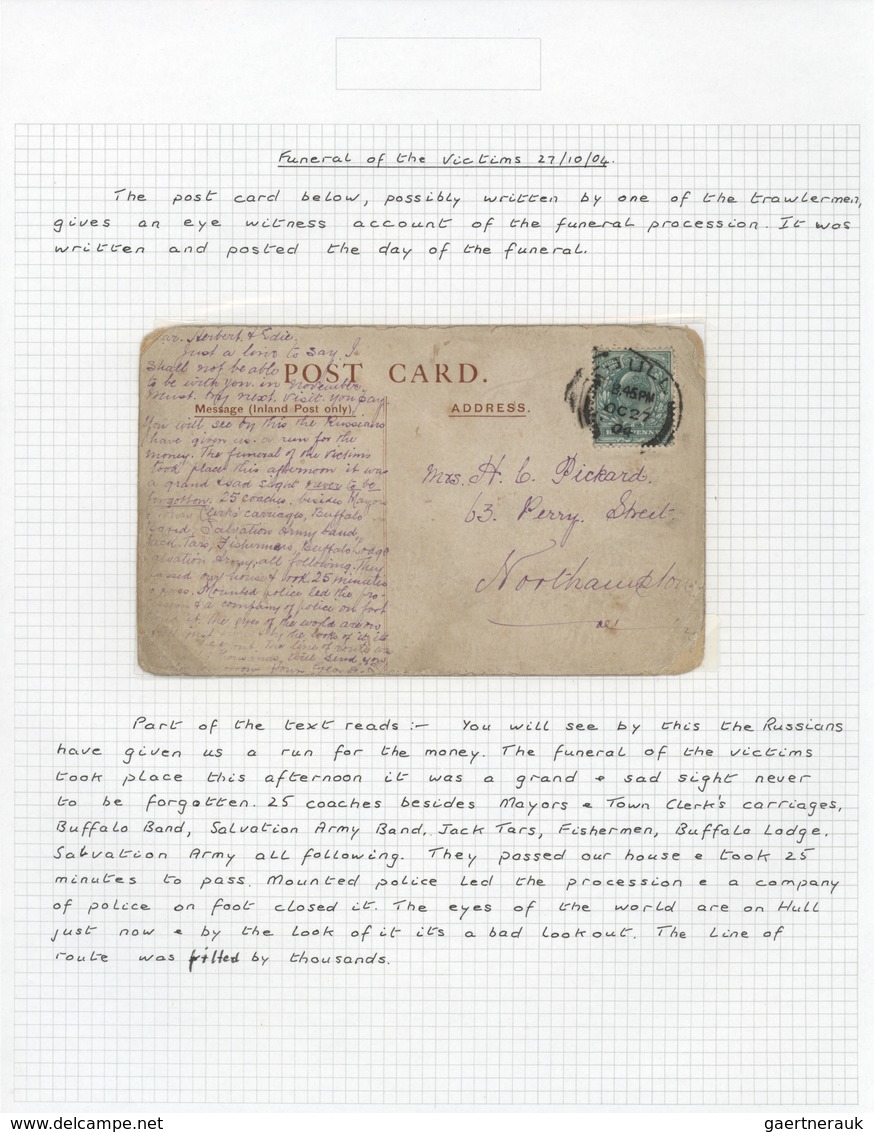 Funeral of the Victims 27/10/04.
The post card below, possibly written by one of the trawlermen,
gives an eye witness account of the funeral procession. It was
written and posted the day of the funeral.
Herbert & Edie.
Just a line to say I
shall not be able
to be with you in November
must my next visit you say
POST CARD.
Message (Inland Post only).
ADDRESS.
HULL
8.45PM
OC 27
04
You will see by this the Russians
have given us a run for the
money. The funeral of the victims
took place this afternoon it was
a grand & sad sight never to be
forgotten. 25 coaches besides Mayors
Clerk's carriages, Buffalo
Band, Salvation Army band,
Jack Tars, Fishermens, Buffalo Lodge
Salvation Army, all following. They
passed our house & took 25 minutes
to pass. Mounted police led the pro-
& a company of police on foot
the eyes of the world are on
by the look of it its
line of route
thousands, Will send you
Mrs. H. C. Pickard.
63. Perry. Street.
Northampton
Part of the text reads :- You will see by this the Russians
have given us a run for the money. The funeral of the victims
took place this afternoon it was a grand & sad sight never
to be forgotten. 25 coaches besides Mayors & Town Clerk's carriages,
Buffalo Band, Salvation Army Band, Jack Tars, Fishermen, Buffalo Lodge.
Salvation Army all following. They passed our house & took 25
minutes to pass. Mounted police led the procession & a company
of police on foot closed it. The eyes of the world are on Hull
just now & by the look of it its a bad lookout. The line of
route was by thousands.
delcampe.net
gaertnerauk